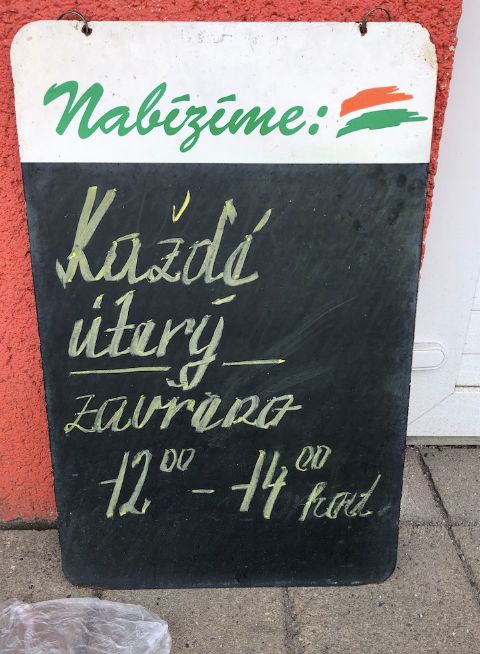 Nabízíme:
Každé
úterý
zavřeno
12⁰⁰ - 14⁰⁰ hod